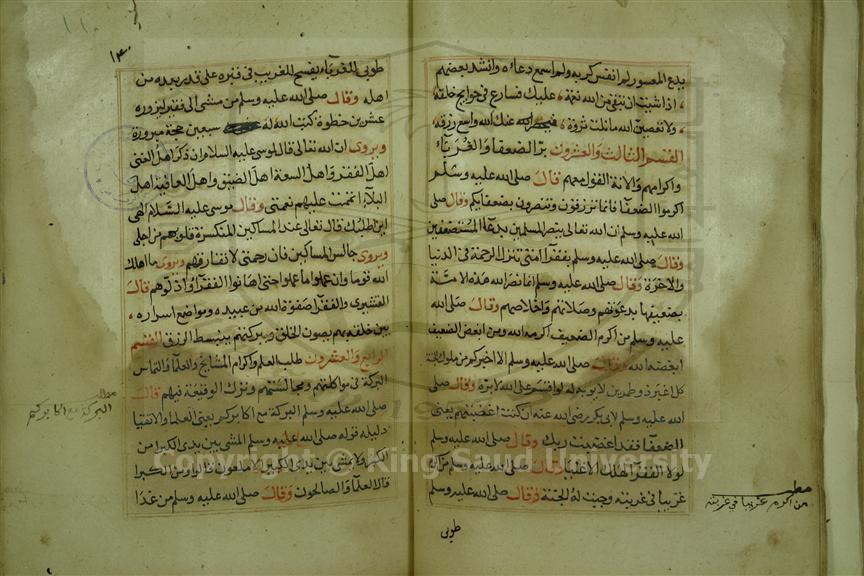 يدع المعسور لم انفس كربه ولم اسمع دعاءه وانشد بعضهم
اذا شئت ان تبقى من الله نعمة عليك فسارع في حوايج خلقه
ولا تعصين الله ما نلت ثروة عنك الله واسع رزقه
القسم الثالث والعشرون بر الضعفا والغرباء
واكرامهم والانة القول معهم قال صلى الله عليه وسلم
اكرموا الضعفا فانما ترزقون وتنصرون بضعفايكم وقال صلى
الله عليه وسلم ان الله تعالى ينصر المسلمين بدعا المستضعفين
وقال صلى الله عليه وسلم بفقراء امتي تنزل الرحمة في الدنيا
والاخرة وقال صلى الله عليه وسلم انما نصر الله هذه الامة
بضعيفها بدعوتهم وصلاتهم واخلاصهم وقال صلى الله
عليه وسلم من اكرم الضعيف اكرمه الله ومن ابغض الضعيف
ابغضه الله وقال صلى الله عليه وسلم الا اخبركم من ملوك الجنة
كل اغبر ذو طمرين لا يوبه له لو اقسم على الله لابره وقال صلى
الله عليه وسلم لابي بكر رضي الله عنه ان كنت اغضبتهم يعني
الضعفا فقد اغضبت ربك وقال صلى الله عليه وسلم
لولا الفقرا هلك الاغنيا وقال صلى الله عليه وسلم من اكرم
غريبا في غربته وجبت له الجنة وقال صلى الله عليه وسلم
طوبى
مطلب
من اكرم غريبا في غربته
١٤٠
طوبى للغرباء يفسح للغريب في قبره على قدر بعده من
اهله وقال صلى الله عليه وسلم من مشى الى فقير ليزوره
عشرين خطوة كتبت الله له سبعين حجة مبرورة
ويروى ان الله تعالى قال لموسى عليه السلام ان ذكر اهل الغنى
اهل الفقر واهل السعة اهل الضيق واهل العافية اهل
البلاء اتممت عليهم نعمتي وقال موسى عليه السلام الهي
اين اطلبك قال تعالى عند المساكين المنكسرة قلوبهم من اجلي
ويروى جالس المساكين فان رحمتي لا تفارقهم ويروى ما اهلك
الله قوما وان عملوا ما عملوا حتى اهانوا الفقرا واذلوهم قال
القشيري والفقرا صفوة الله من عبيده ومواضع اسراره
بين خلقه بهم يصون الخلق وببركتهم يبسط الرزق القسم
الرابع والعشرون طلب العلم واكرام المشايخ والعلما والتماس
البركة في مواكلتهم ومجالستهم وترك الوقيعة فيهم قال
صلى الله عليه وسلم البركة مع اكابركم يعني العلما والاتقيا
دليله قوله صلى الله عليه وسلم المشي بين يدي الكبرا من
الكبر ولا يمشي بين يدي الكبير الا ملعون قالوا ومن الكبرا
قال العلما والصالحون وقال صلى الله عليه وسلم من غدا
مطلب
البركة مع اكابركم
Copyright © King Saud University